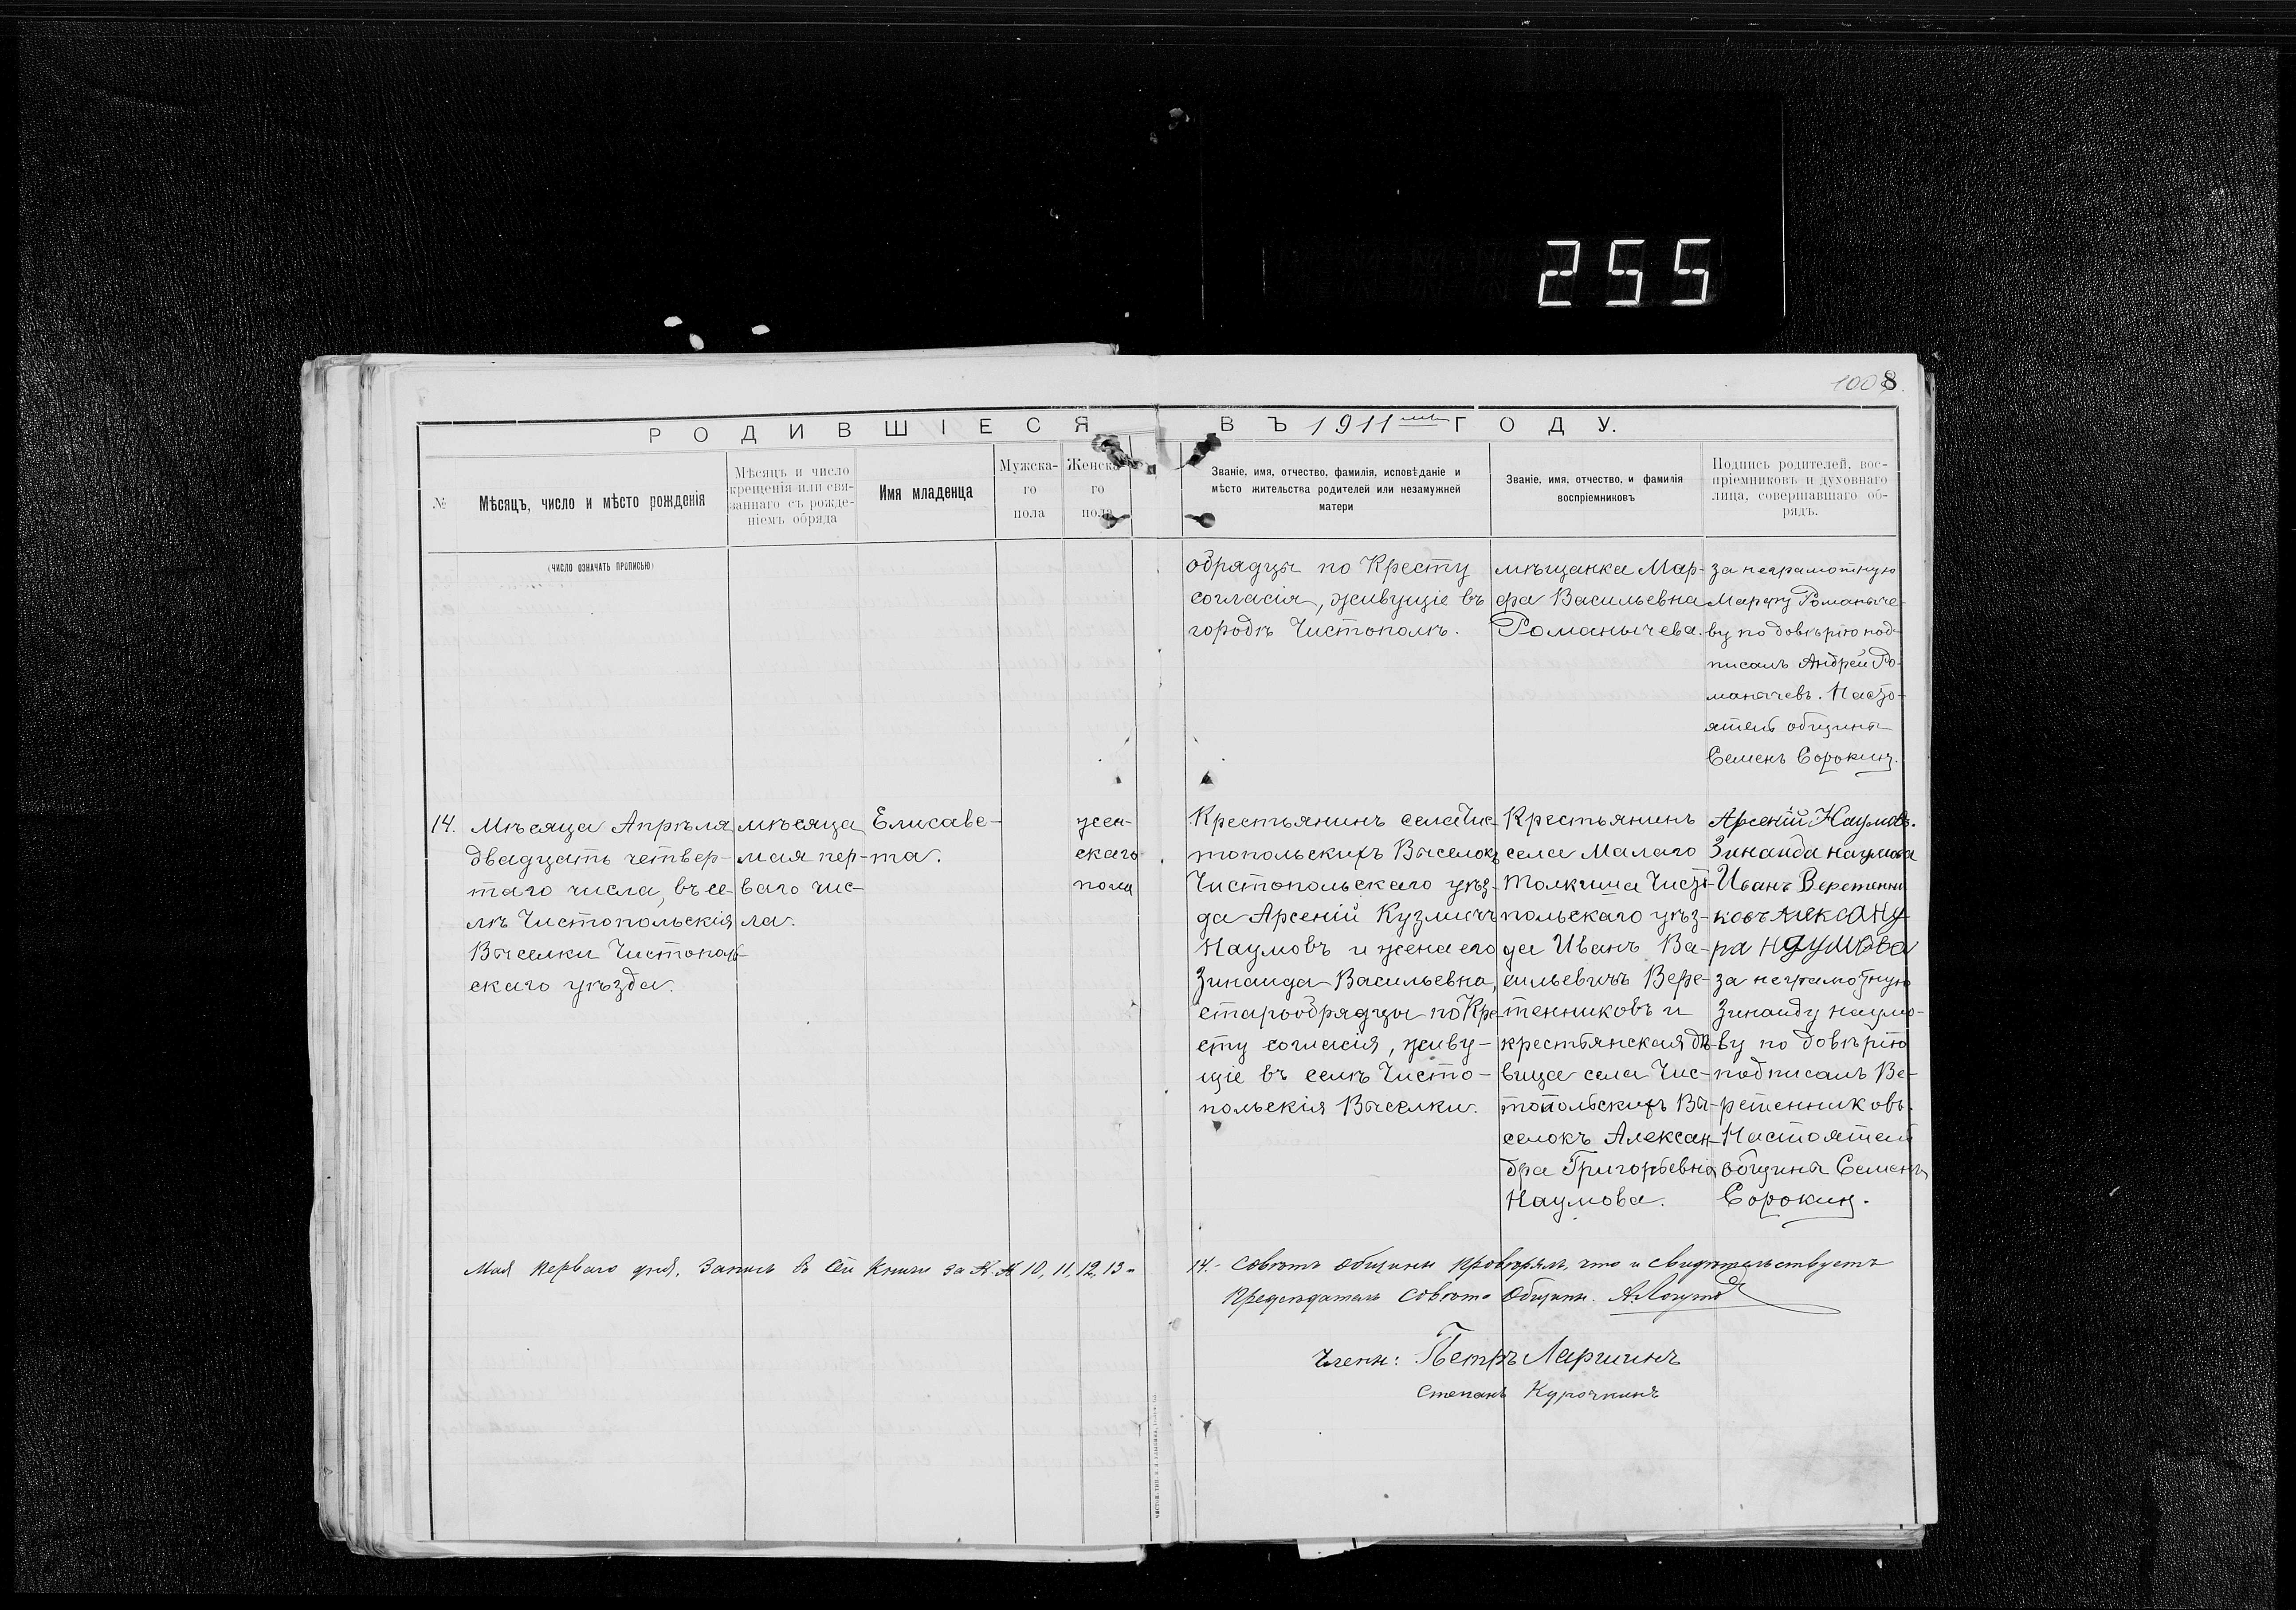 255
1008
РОДИВШІЕСЯ ВЪ 1911 ГОДУ.
№
Мѣсяцъ, число и мѣсто рожденія
Мѣсяцъ и число
крещенія или свя-
заннаго съ рожде-
ніемъ обряда
Имя младенца
Мужска-
го
пола
Женска-
го
пола
Званіе, имя, отчество, фамилія, исповѣданіе и
мѣсто жительства родителей или незамужней
матери
Званіе, имя, отчество, и фамилія
воспріемниковъ
Подпись родителей, вос-
пріемниковъ и духовнаго
лица, совершавшаго об-
рядъ.
(ЧИСЛО ОЗНАЧАТЬ ПРОПИСЬЮ)
обрядцы по Кресту
согласія, живущіе въ
городѣ Чистополѣ.
мѣщанка Мар-
фа Васильевна
Романычева.
за неграмотную
Марфу Романыче-
ву по довѣрію под-
писалъ Андрей Ро-
манычевъ. Насто-
ятель общины
Семенъ Сорокинъ.
14.
Мѣсяца Апрѣля
двадцать четвер-
таго числа, въ се-
лѣ Чистопольскія
Выселки Чистополь-
скаго уѣзда.
мѣсяца
мая пер-
ваго чис-
ла.
Елисаве-
та.
жен-
скаго
пола
Крестьянинъ села Чис-
топольскихъ Выселокъ
Чистопольскаго уѣз-
да Арсеній Кузмичъ
Наумовъ и жена его
Зинаида Васильевна,
старообрядцы по Кре-
сту согласія, живу-
щіе въ селѣ Чисто-
польскія Выселки.
Крестьянинъ
села Малаго
Толкиша Чисто-
польскаго уѣз-
да Иванъ Ва-
сильевичъ Вере-
тенниковъ и
крестьянская дѣ-
вица села Чис-
топольскихъ Вы-
селокъ Алексан-
дра Григорьевна
Наумова.
Арсеній Наумовъ.
Зинаида Наумова
Иванъ Веретенни
ковъ Александ
ра Наумова
за неграмотную
Зинаиду Наумо-
ву по довѣрію
подписалъ Ве-
ретенниковъ.
Настоятель
общины Семенъ
Сорокинъ.
Мая перваго дня. Запись въ сей книги за №№ 10, 11, 12, 13-
14.- Совѣтъ общины провѣрялъ, что и свидѣтельствуетъ
Предсѣдатель Совѣта Общины.
Члены: Петръ Ларшинъ
Степанъ Курочкинъ